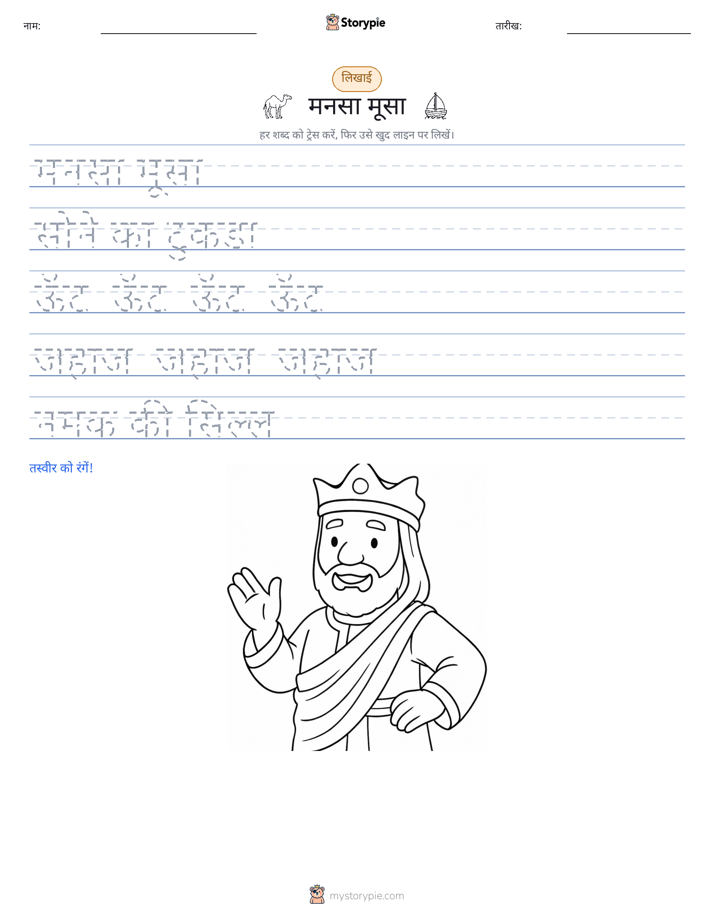 नाम:
Storypie
तारीख:
लिखाई
मनसा मूसा
हर शब्द को ट्रेस करें, फिर उसे खुद लाइन पर लिखें।
मनसा मूसा
सोने का टुकडा
ऊँट ऊँट ऊँट ऊँट
जहाज जहाज जहाज
नमक की सिल्ल
तस्वीर को रंगें!
mystorypie.com